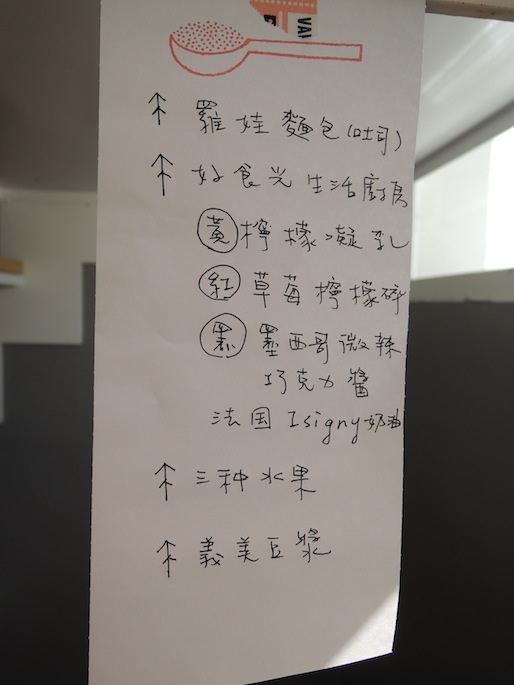 VA
羅娃麵包(吐司)
好食光生活廚房
黃 檸檬凝乳
紅 草莓檸檬
黑 墨西哥微辣
巧克力醬
法国 Isigny奶油
三种水果
義美豆漿